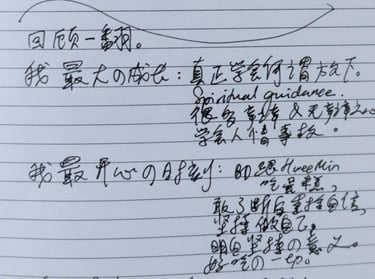 回顾一番。
我最大の成长：真正学会何谓放下。
Spiritual guidance.
很多幸幸 & 无幸幸之
学会人情事故。
我最开心の时刻：即跟HweeMin
吃蛋糕，
敢了断自重拾自信，
坚持做自己，
明白坚持の意义。
好吃の一切。